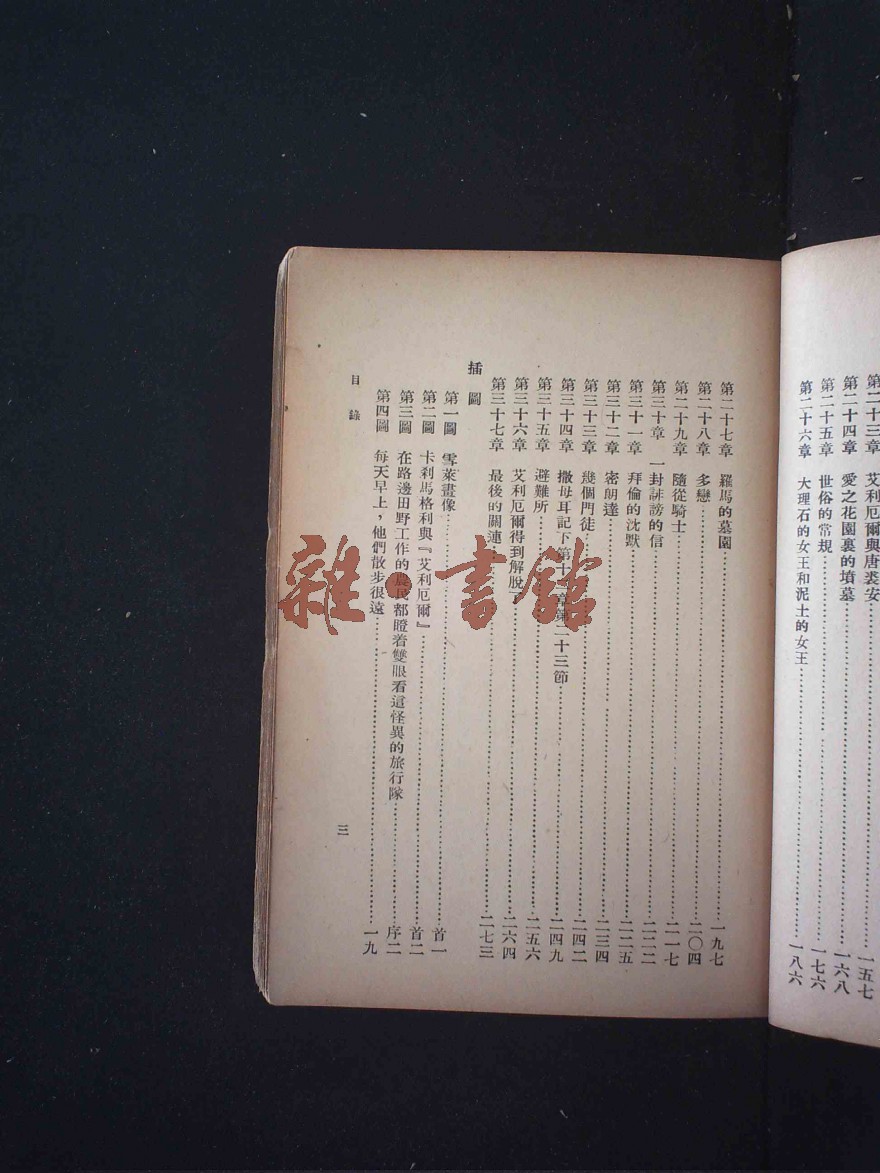 第二十三章 艾利厄爾與唐裘安……一五七
第二十四章 愛之花園裏的墳墓……一六八
第二十五章 世俗的常規……一七六
第二十六章 大理石的女王和泥土的女王……一八六
第二十七章 羅馬的墓園……一九七
第二十八章 多戀……二〇四
第二十九章 隨從騎士……二一七
第三十章 一封誹謗的信……二二二
第三十一章 拜倫的沈默……二二五
第三十二章 密朗達……二三四
第三十三章 幾個門徒……二四二
第三十四章 撒母耳記下第十二章第二十三節……二四九
第三十五章 避難所……二五六
第三十六章 艾利厄爾得到解脫了……二六四
第三十七章 最後的關連……二七三
插圖
第一圖 雪萊畫像……首一
第二圖 卡刹馬格利與『艾利厄爾』……首二
第三圖 在路邊田野工作的農民都瞪着雙眼看這怪異的旅行隊……序二
第四圖 每天早上，他們散步很遠……一九
目錄
三
雜·書館